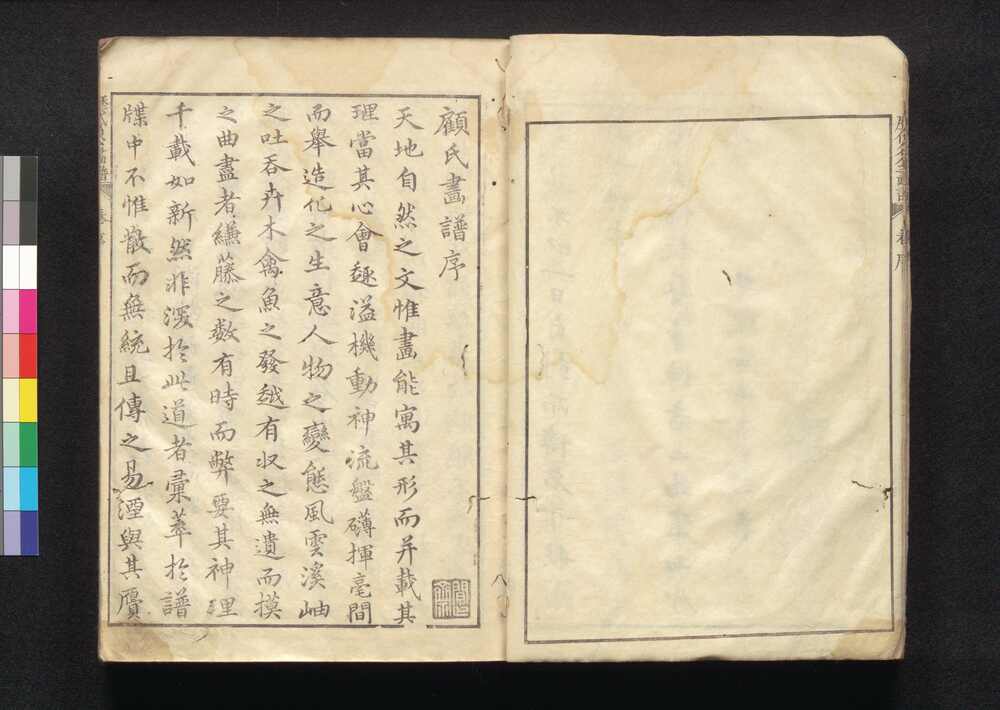 顧氏畫譜序
天地自然之文惟畫能寓其形而并載其
理當其心會趣溢機動神流盤礴揮毫間
而舉造化之生意人物之變態風雲溪岫
之吐吞卉木禽魚之發越有収之無遺而摸
之曲盡者縑藤之數有時而弊要其神理
千載如新然非深於此道者彙萃於譜
牒中不惟散而無統且傳之易湮與其贗